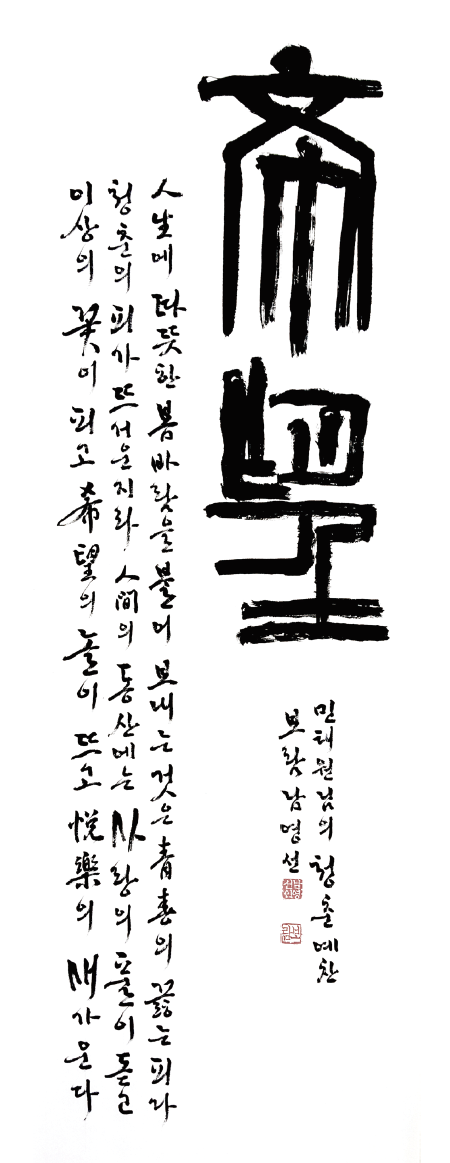 希望
人生에 따뜻한 봄바람을 불어 보내는 것은 青春의 끓는 피라
청춘의 피가 뜨거운지라 人間의 동산에는 사랑의 풀이 돋고
이상의 꽃이 피고 希望의 놀이 뜨고 悅樂의 새가 운다
민태원님의 청춘예찬
보람 남명선